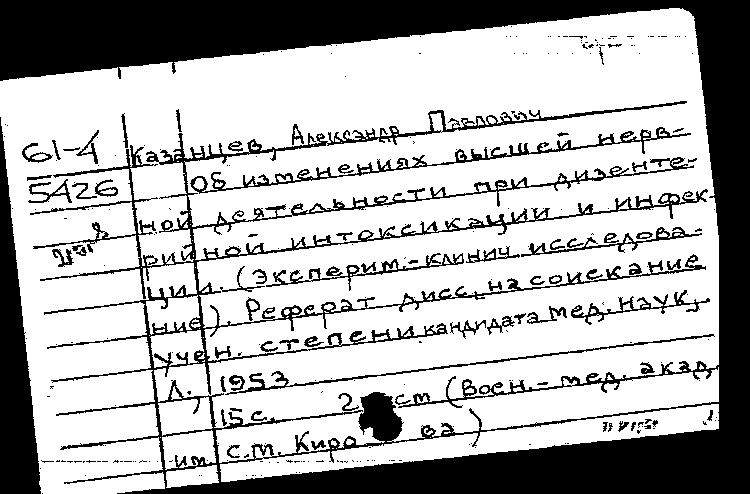 61-4 Казанцев, Александр Павлович
5426 Об изменениях высшей нерв-
ной деятельности при дизенте-
рийной интоксикации и инфек-
ции. (Эксперим.-клинич исследова-
ние). Реферат дисс. на соискание
учен. степени кандидата мед. наук,
Л., 1953
15 с. 2 ст (Воен.-мед. акад.
им. С.М. Кирова)